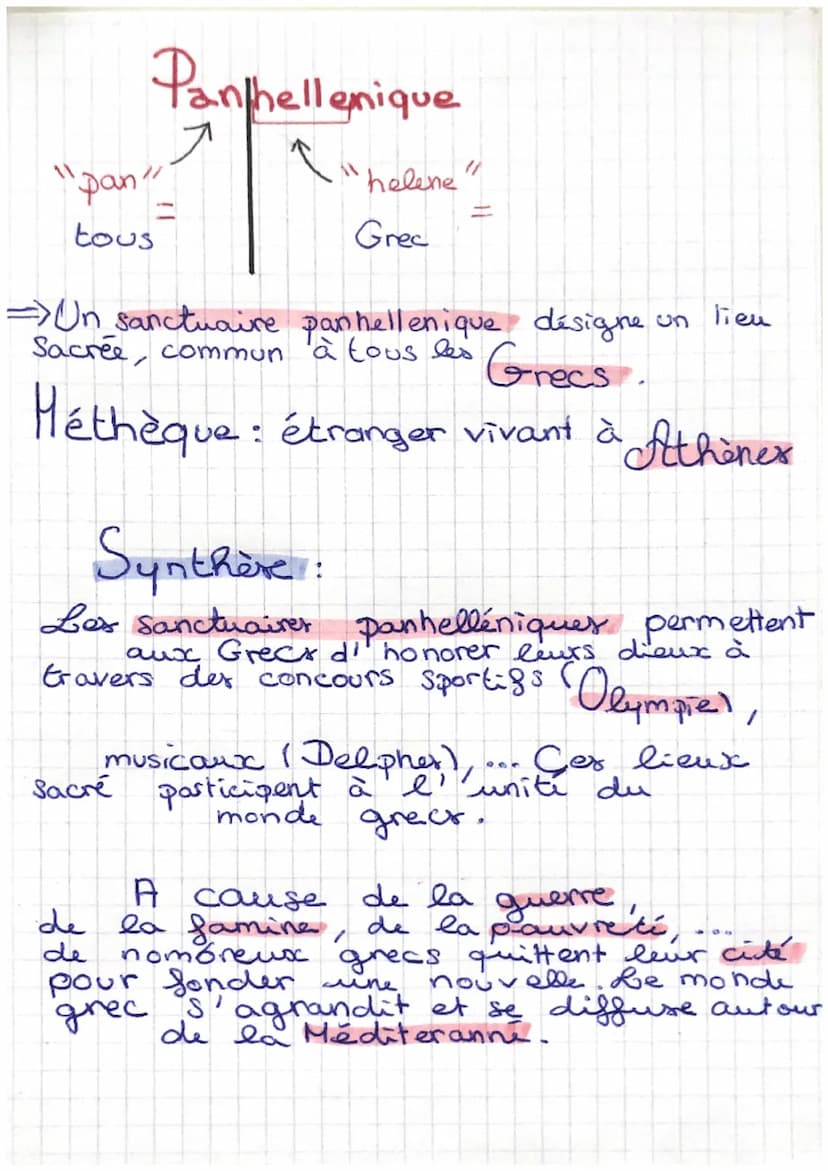 Panhellenique
"pan" "helene"
= =
tous Grec
=> Un sanctuaire panhellenique désigne un lieu
Sacrée, commun à tous les Grecs.
Méthèque : étranger vivant à Athènes
Synthèse :
Les sanctuaires panhelléniques permettent
aux Grecs d'honorer leurs dieux à
travers des concours sportifs (Olympie),
musicaux (Delphes), ... Ces lieux
sacré participent à l'unité du
monde grecs.
A cause de la guerre,
de la famine, de la pauvreté, ...
de nombreux grecs quittent leur cité
pour fonder une nouvelle. Le monde
grec s'agrandit et se diffuse autour
de la Méditeranné.